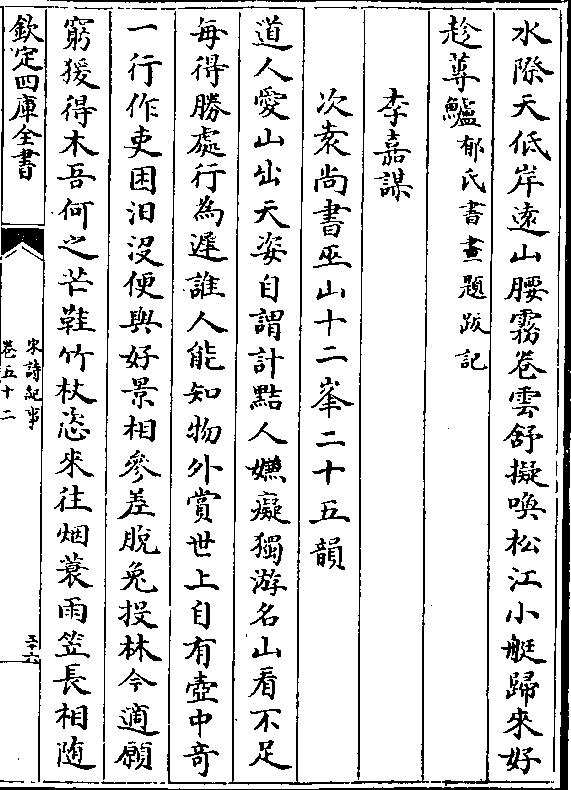 水際天低岸遠山腰霧卷雲舒擬喚松江小艇歸來好
趁蓴鱸郁氏書畫題跋記
李嘉謀
次袁尚書巫山十二峯二十五韻
道人愛山出天姿自謂計點人嫌癡獨游名山看不足
每得勝處行為遲誰人能知物外賞世上自有壺中竒
一行作吏困汩沒便與好景相參差脫兔投林今適願
窮猨得木吾何之芒鞵竹杖恣來往烟蓑雨笠長相随
欽定四庫全書
宋詩紀事
卷五十二
三十六